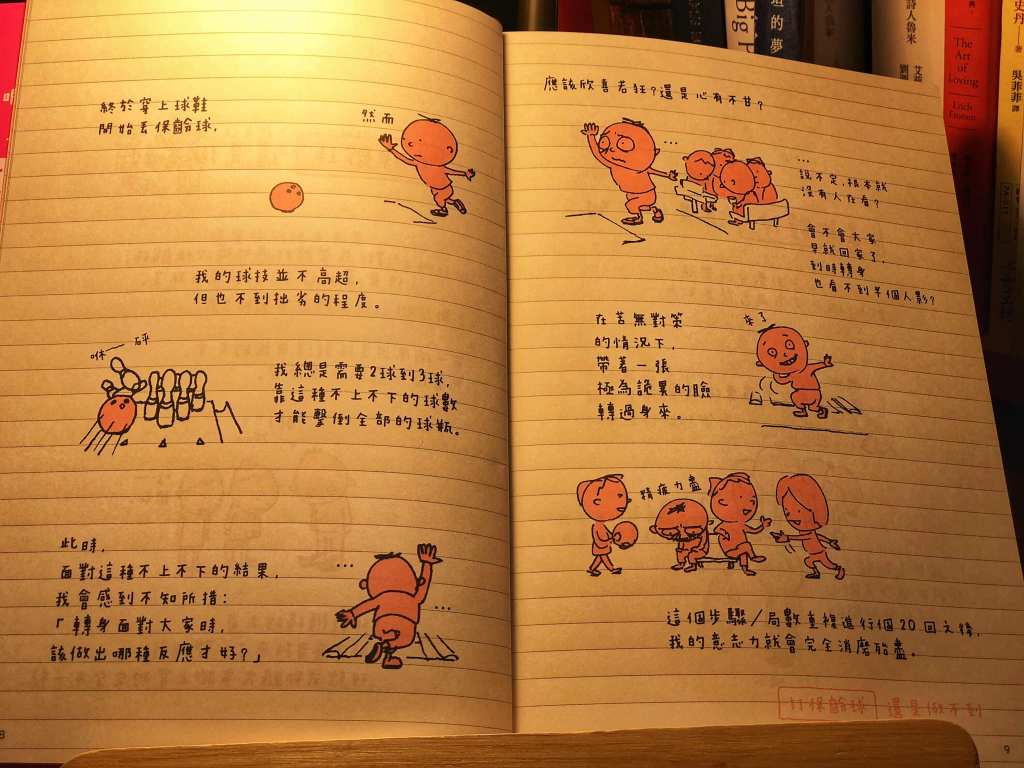 終於穿上球鞋
開始丟保齡球，
然而
我的球技並不高超，
但也不到拙劣的程度。
咻
砰
我總是需要2球到3球，
靠這種不上不下的球數
才能擊倒全部的球瓶。
此時，
面對這種不上不下的結果，
我會感到不知所措：
「轉身面對大家時，
該做出哪種反應才好？」
...
...
8
應該欣喜若狂？還是心有不甘？
...
...
說不定，根本就
沒有人在看？
會不會大家
早就回家了，
到時轉身
也看不到半個人影？
在苦無對策
的情況下，
帶著一張
極為詭異的臉
轉過身來。
來了
精疲力盡
這個步驟／局數重複進行個20回之後，
我的意志力就會完全消磨殆盡。
打保齡球 還是做不到
9
Big
的夢
詩人魯米
艾
劉
The
Art
of
Loving
Erich
Fromm
史丹
著
吳菲菲
譯